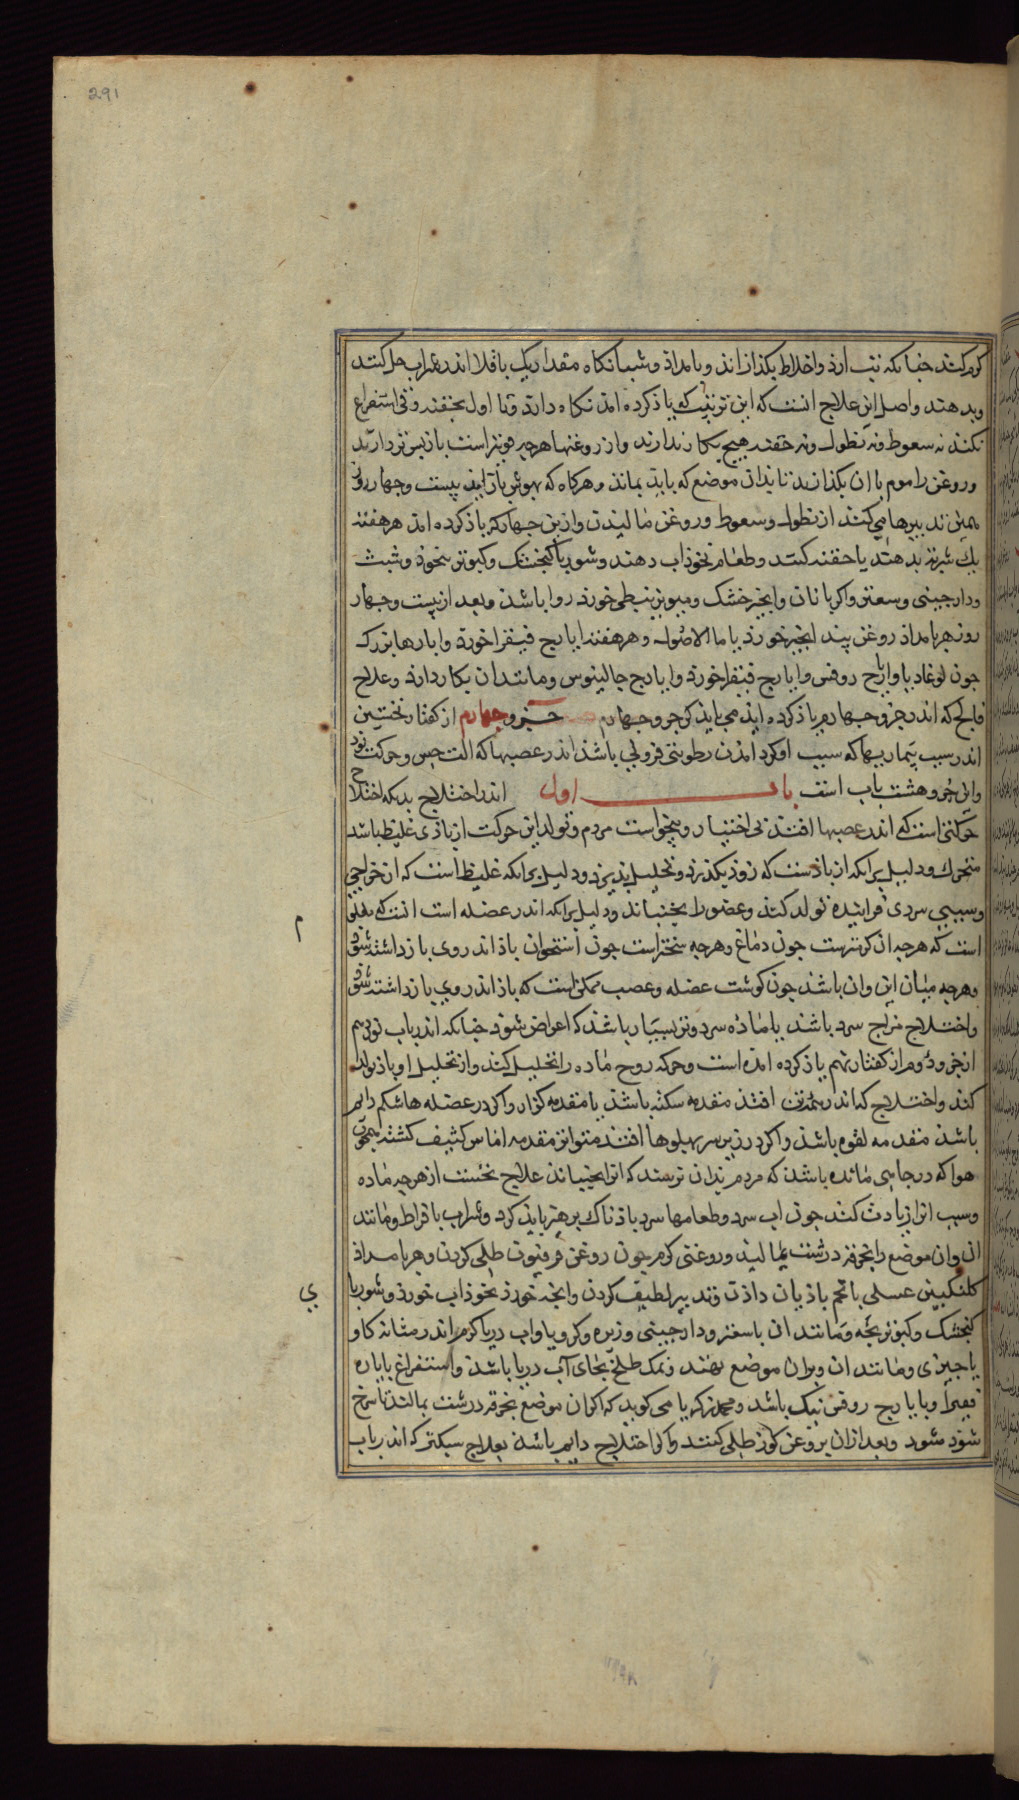 291
گرم کنند جنانکه تب ارذ و اخلاط بکذازاند و بامداذ و شبانکاه مقدار یک باقلا اندر شراب حل کنند
و بدهند و اصل این علاج انست که این ترتیب که یاذ کرده امد نکاه دارند و تا اول بحقنه و قی استفراغ
نکنند نه سعوط و نه نطول و نه حقنه هیچ بکار ندارند و از روغنها هرجه قویتر است باز پس تر دارند
و روغن را موم با ان بکذازند تا بذان موضع که باید بماند و هرکاه که بهوش بازاید بیست و جهار روز
همین تدبیرها می کنند از نطول و سعوط و روغن مالیدن و ازین جهار که یاذ کرده امد هر هفته
یک شربت بدهند یا حقنه کنند و طعام نخوذاب دهند و شوربا کنجشک و کبوتر بنخوذ و شبث
و دارجینی و سعتر و اکر با نان و انجیر خشک و میویز نبطی خورد روا باشذ و بعد از بیست و جهار
روز هر بامداذ روغن بید انجیر خورذ با ما الاصول و هر هفته ایارج فیقرا خورد و ایارهاء بزرک
جون لوغادیا و ایارج روفس و ایارج فیقرا خورد و ایارج جالینوس و مانند ان بکار دارد و علاج
فالج که اندر جزو جهارم یاذ کرده ایذ می بایذ کرد جزو جهارم جزو جهارم از کفتار نخستین
اندر سبب بیماریها که سبب او کرد امدن رطوبتی فزونی باشذ اندر عصبها که الت حس و حرکت بود
و این جزو هشت باب است باب اول اندر اختلاج بدانکه اختلاج
حرکتی است که اندر عصبها افتد بی اختیار و بیخواست مردم و تولد این حرکت از باذی غلیظ باشد
متحرک و دلیل برانکه از باذ ست که زوذ بکذرد و تحلیل پذیرد و دلیل برانکه غلیظ است که از خراجی
و سببی سردی فزاینده تولد کند و عضو را بجنباند و دلیل برانکه اندر عضله است انست که
است که هرجه ان نرمترست جون دماغ و هرجه سختر است جون استخوان باذ اندر وی بازداشته نشود
و هرجه میان این و ان باشذ جون کوشت عضله و عصب ممکن است که باذ اندر وی بازداشته شود
و اختلاج مزاج سرد باشد یا ماده سرد و تر بسیار باشذ که اعراض شود جنانکه اندر باب نوزدهم
از جزو دوم از کفتار نهم یاذ کرده امده است و حرکه روح ماده را تحلیل کند و از تحلیل او باذ تولد
کند و اختلاج که اندر همه تن افتد مقدمه سکته باشذ یا مقدمه کزاز و اکر در عضله هاء شکم دایم
باشذ مقدمه لقوه باشذ و اکر در زیر سر پهلوها افتد متواتر مقدمه اماس کثیف کشتن همجون
هوا که در جایی مانده باشذ که مردم بذان ترسند که انرا بجنباند علاج نخست از هرجه ماده
و سبب انرا زیادت کند جون اب سرد و طعامهاء سرد باذناک پرهیز بایذ کرد و شراب بافراط و مانند
ان و ان موضع را بخرقه درشت بمالید و روغنی کرم جون روغن فرفیون طلی کردن و هر بامداذ
کلنکبین عسلی با تخم باذیان داذن و تدبیر لطیف کردن و انجه خورد نخوذاب خورد و شوربا
کنجشک و کبوتر بجه و مانند ان با سعتر و دارجینی و زیره و کرویا و اب دریا کرم اندر مثانه کاو
یا جیزی و مانند ان و بران موضع نهند و نمک طلخ بجای آب دریا باشذ و استفراغ بایاره
فیقرا و بایارج روفس نیک باشد و محمد زکریا می کوید که اکر ان موضع بخرقه درشت بمالند تا سرخ
شود شود و بعد ازان بروغن کوز طلی کنند و اکر اختلاج دایم باشذ بعلاج سبکتر که اندر باب
م
ی